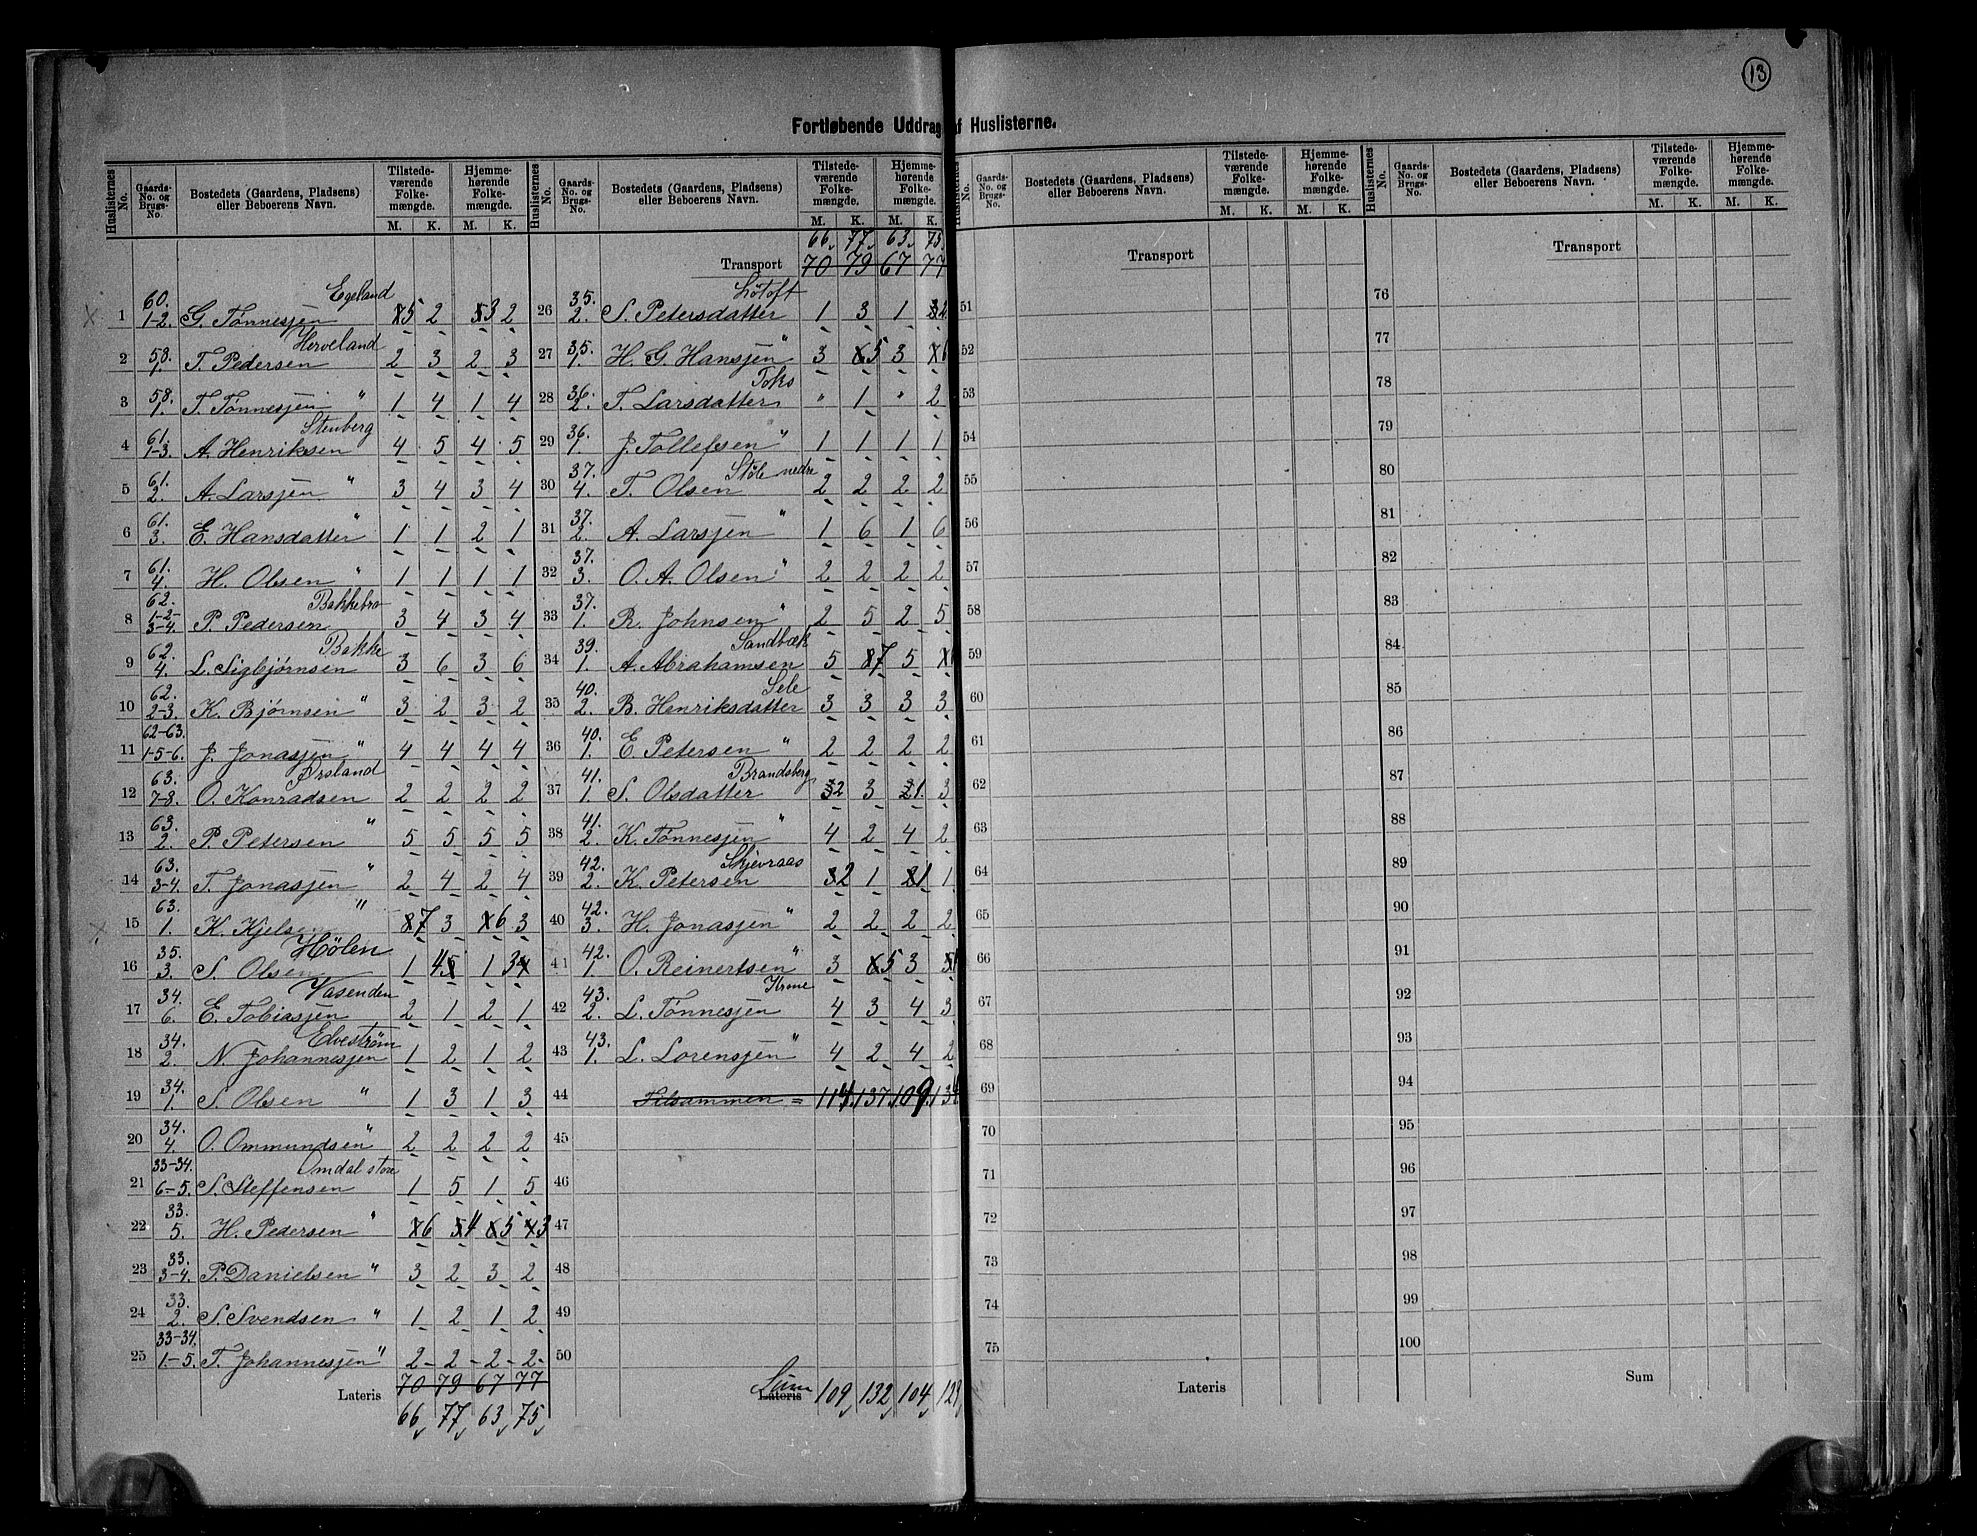 13
Fortløbende Uddrag af Huslisterne.
Huslisternes No. | Gaards-No. og Brugs-No. | Bostedets (Gaardens, Pladsens) eller Beboerens Navn. | Tilstedeværende Folkemængde. M. K. | Hjemmehørende Folkemængde. M. K.
1 | 60. 1-2. | G. Tønnesjen Egeland | 5 | 2 | 3 | 2
2 | 58. 1. | T. Pedersen Herveland | 2 | 3 | 2 | 3
3 | 58. 1. | T. Tønnesjen " | 1 | 4 | 1 | 4
4 | 61. 1-3. | A. Henriksen Stenberg | 4 | 5 | 4 | 5
5 | 61. 2. | A. Larsjen " | 3 | 4 | 3 | 4
6 | 61. 3. | E. Hansdatter " | 1 | 1 | 2 | 1
7 | 61. 4. | H. Olsen " | 1 | 1 | 1 | 1
8 | 62. 1-2-3-4. | P. Pedersen Bakkebro | 3 | 4 | 3 | 4
9 | 62. 4. | L. Sigbjørnsen Bakke | 3 | 6 | 3 | 6
10 | 62. 2-3. | K. Bjørnsen " | 3 | 2 | 3 | 2
11 | 62-63. 1-5-6. | J. Jonasjen " | 4 | 4 | 4 | 4
12 | 63. 7-8. | O. Konradsen Ørsland | 2 | 2 | 2 | 2
13 | 63. 2. | P. Petersen " | 5 | 5 | 5 | 5
14 | 63. 3-4. | T. Jonasjen " | 2 | 4 | 2 | 4
15 | 63. 1. | K. Kjelsen " | 7 | 3 | 6 | 3
16 | 35. 3. | S. Olsen Hølen | 1 | 4 | 1 | 3
17 | 34. 6. | E. Tobiasjen Vasenden | 2 | 1 | 2 | 1
18 | 34. 2. | N. Johannesjen Elvestrøm | 1 | 2 | 1 | 2
19 | 34. 1. | S. Olsen " | 1 | 3 | 1 | 3
20 | 34. 4. | O. Ommundsen " | 2 | 2 | 2 | 2
21 | 33-34. 6-5. | S. Steffensen Omdal store | 1 | 5 | 1 | 5
22 | 33. 5. | H. Pedersen " | 6 | 4 | 5 | 3
23 | 33. 3-4. | P. Danielsen " | 3 | 2 | 3 | 2
24 | 33. 2. | S. Svendsen " | 1 | 2 | 1 | 2
25 | 33-34. 1-5. | T. Johannesjen " | 2 | 2 | 2 | 2
Lateris | 70 | 79 | 67 | 77
66 | 77 | 63 | 75
Huslisternes No. | Gaards-No. og Brugs-No. | Bostedets (Gaardens, Pladsens) eller Beboerens Navn. | Tilstedeværende Folkemængde. M. K. | Hjemmehørende Folkemængde. M. K.
66 | 77 | 63 | 75
Transport | 70 | 79 | 67 | 77
26 | 35. 2. | S. Petersdatter Løtoft | 1 | 3 | 1
27 | 35. 1. | H. G. Hansjen " | 3 | 5 | 3 | 6
28 | 36. 2. | T. Larsdatter Foks | " | 1 | " | 2
29 | 36. 1. | J. Tollefsen " | 1 | 1 | 1 | 1
30 | 37. 4. | T. Olsen Støle nedre | 2 | 2 | 2 | 2
31 | 37. 2. | A. Larsjen " | 1 | 6 | 1 | 6
32 | 37. 3. | O. A. Olsen " | 2 | 2 | 2 | 2
33 | 37. 1. | R. Johnsen " | 2 | 5 | 2 | 5
34 | 39. 1. | A. Abrahamsen Sandbæk | 5 | 7 | 5
35 | 40. 2. | B. Henriksdatter Sele | 3 | 3 | 3 | 3
36 | 40. 1. | E. Petersen " | 2 | 2 | 2 | 2
37 | 41. 1. | S. Olsdatter Brandsberg | 2 | 3 | 1. | 3
38 | 41. 2. | K. Tønnesjen " | 4 | 2 | 4 | 2
39 | 42. 2. | K. Petersen Skjevraas | 2 | 1 | 1 | 1
40 | 42. 3. | H. Jonasjen " | 2 | 2 | 2 | 2
41 | 42. 1. | O. Reinertsen " | 3 | 5 | 3
42 | 43. 2. | L. Tønnesjen Krone | 4 | 3 | 4 | 3
43 | 43. 1. | L. Lorensjen " | 4 | 2 | 4 | 2
44 | Tilsammen = | 114. | 137. | 109. | 134
45
46
47
48
49
50
Lateris Sum | 109 | 132 | 104 | 129
Huslisternes No. | Gaards-No. og Brugs-No. | Bostedets (Gaardens, Pladsens) eller Beboerens Navn. | Tilstedeværende Folkemængde. M. K. | Hjemmehørende Folkemængde. M. K.
Transport
51
52
53
54
55
56
57
58
59
60
61
62
63
64
65
66
67
68
69
70
71
72
73
74
75
Lateris
Huslisternes No. | Gaards-No. og Brugs-No. | Bostedets (Gaardens, Pladsens) eller Beboerens Navn. | Tilstedeværende Folkemængde. M. K. | Hjemmehørende Folkemængde. M. K.
Transport
76
77
78
79
80
81
82
83
84
85
86
87
88
89
90
91
92
93
94
95
96
97
98
99
100
Sum